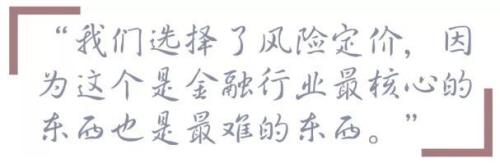 “我们选择了风险定价，因
为这个是金融行业最核心的
东西也是最难的东西。”